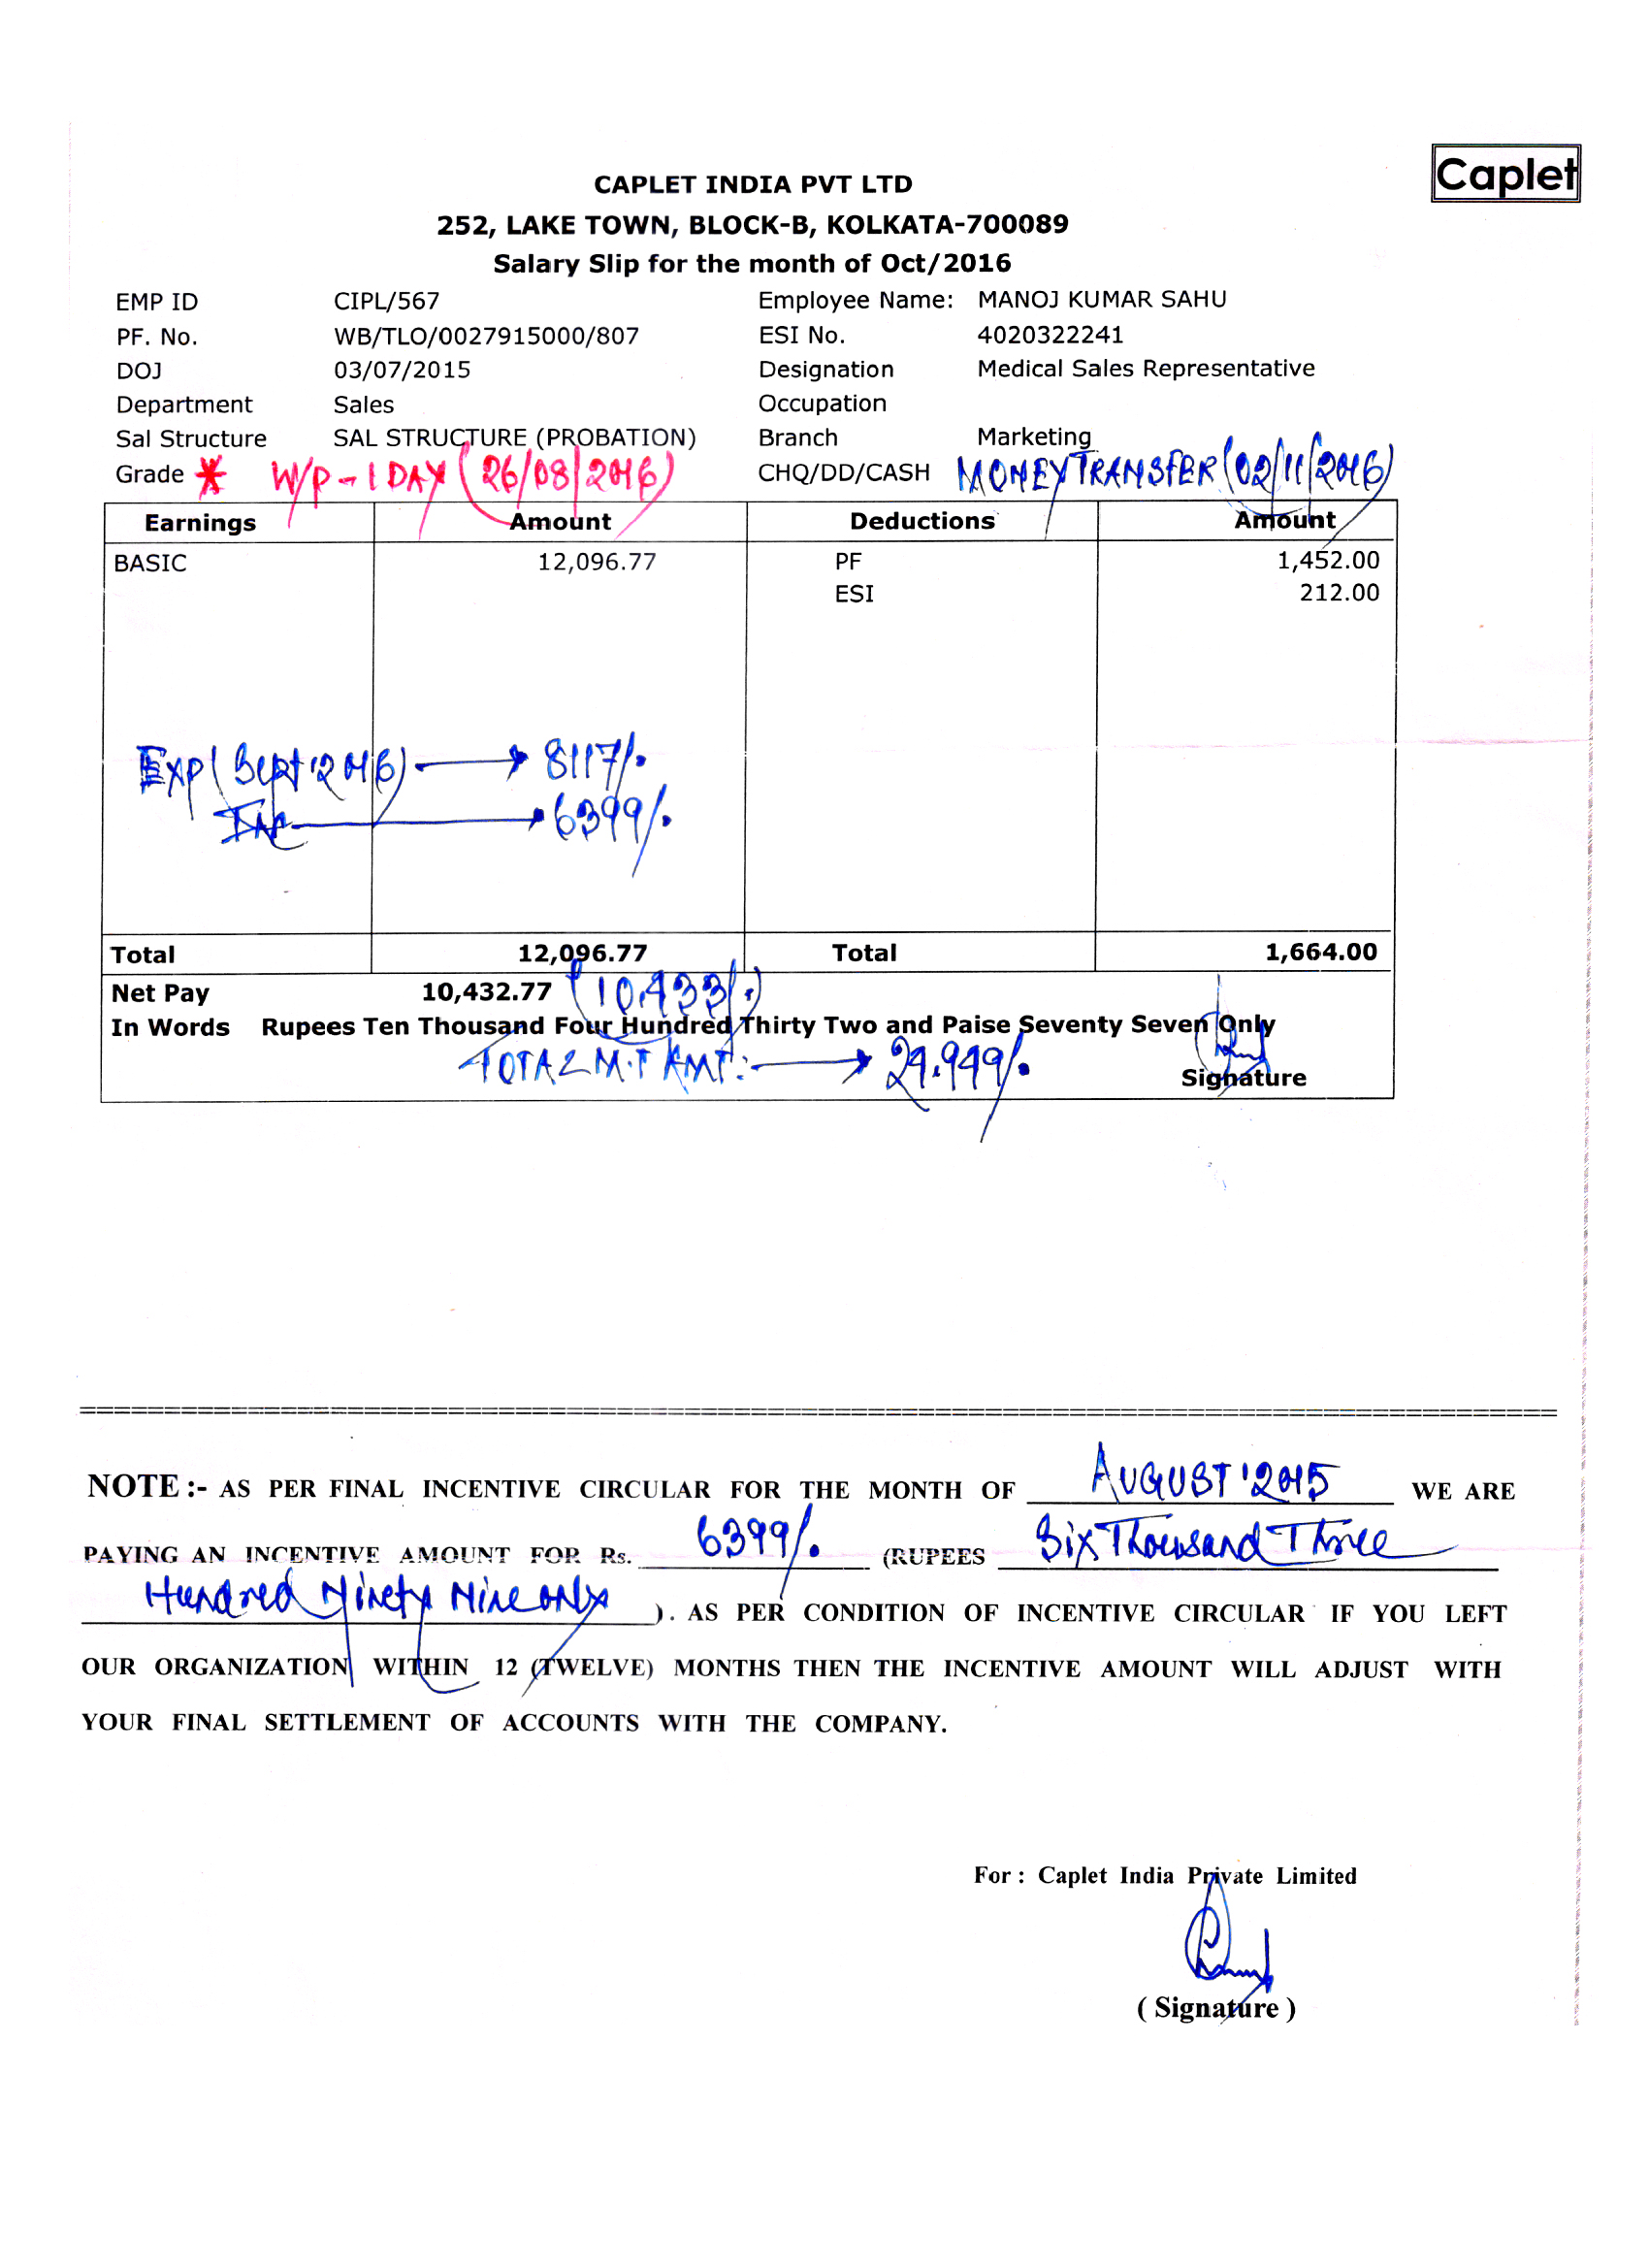 Caplet
CAPLET INDIA PVT LTD
252, LAKE TOWN, BLOCK-B, KOLKATA-700089
Salary Slip for the month of Oct/2016
EMP ID CIPL/567 Employee Name: MANOJ KUMAR SAHU
PF. No. WB/TLO/0027915000/807 ESI No. 4020322241
DOJ 03/07/2015 Designation Medical Sales Representative
Department Sales Occupation
Sal Structure SAL STRUCTURE (PROBATION) Branch Marketing
Grade * W/P - 1 DAY (26/08/2016) CHQ/DD/CASH MONEY TRANSFER (02/11/2016)
Earnings Amount Deductions Amount
BASIC 12,096.77 PF 1,452.00
ESI 212.00
Exp (Sept'2016) → 8117/.
→ 6399/.
Total 12,096.77 Total 1,664.00
Net Pay 10,432.77 (10,433/.)
In Words Rupees Ten Thousand Four Hundred Thirty Two and Paise Seventy Seven Only
TOTAL M.T AMT: → 24.949/.
Signature
NOTE :- AS PER FINAL INCENTIVE CIRCULAR FOR THE MONTH OF AUGUST'2015 WE ARE
PAYING AN INCENTIVE AMOUNT FOR Rs. 6399/. (RUPEES Six Thousand Three
Hundred Ninety Nine only ). AS PER CONDITION OF INCENTIVE CIRCULAR IF YOU LEFT
OUR ORGANIZATION WITHIN 12 (TWELVE) MONTHS THEN THE INCENTIVE AMOUNT WILL ADJUST WITH
YOUR FINAL SETTLEMENT OF ACCOUNTS WITH THE COMPANY.
For : Caplet India Private Limited
( Signature )